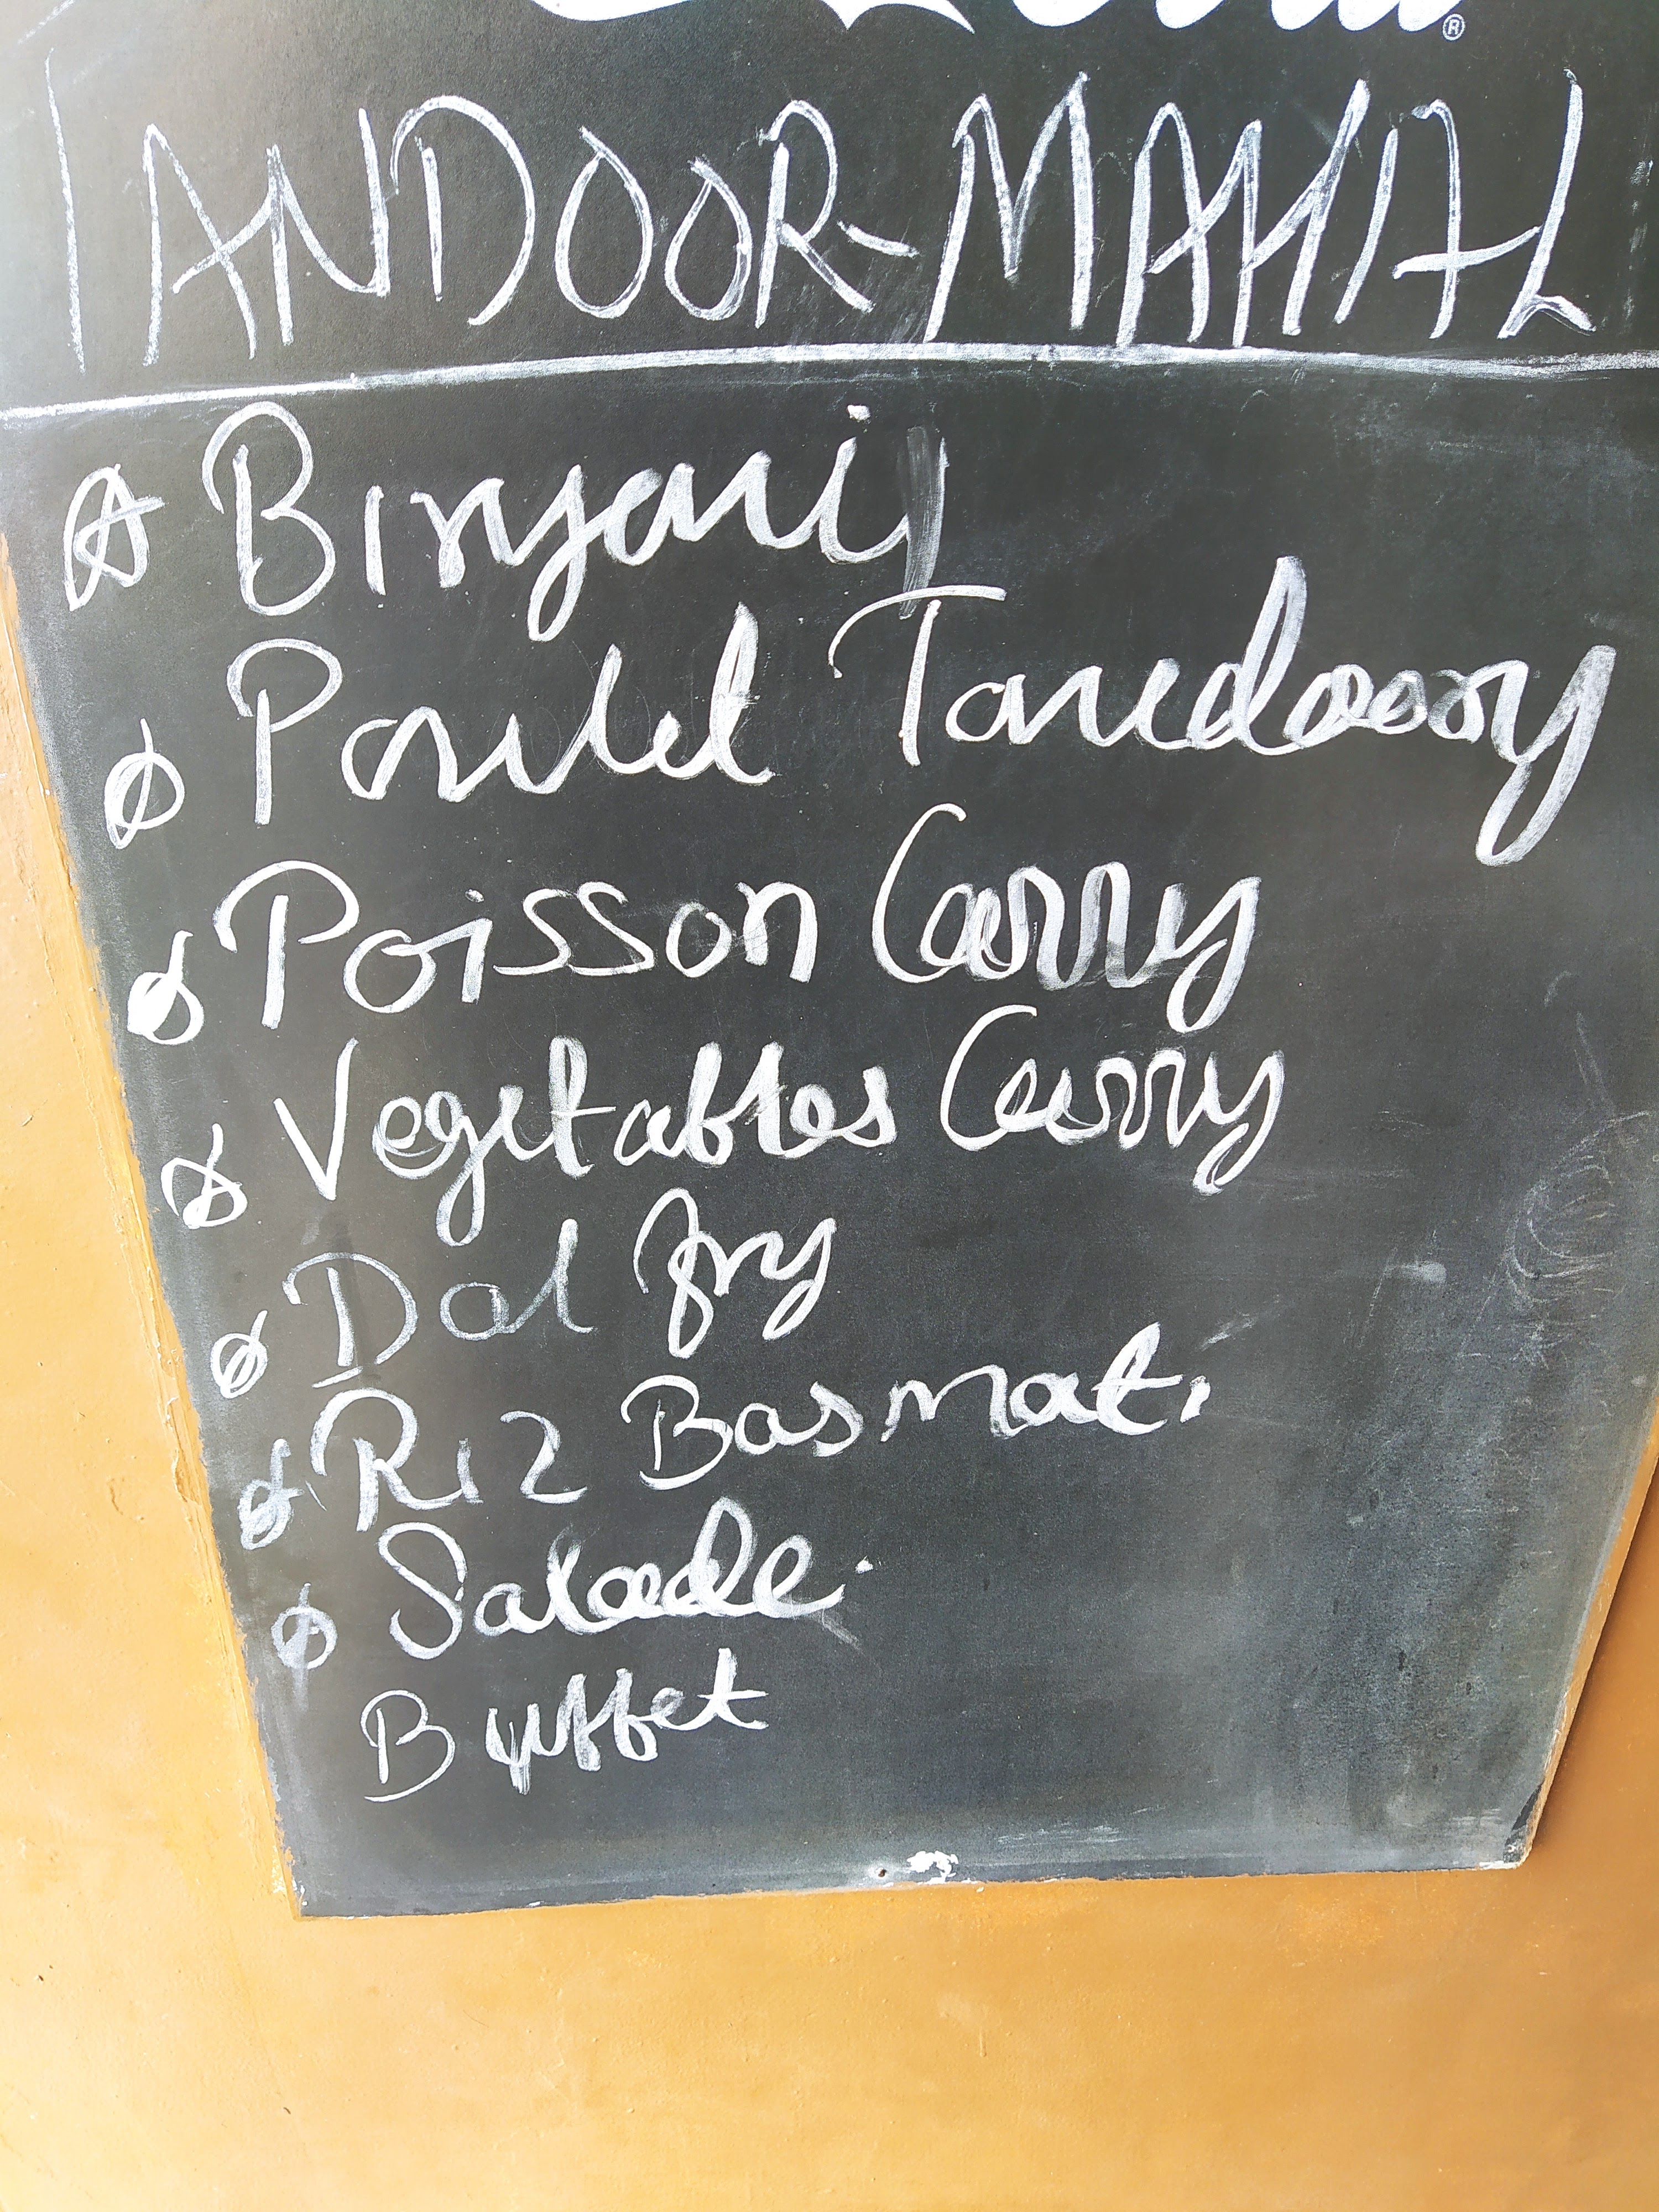 TANDOOR-MAHAL
Biryani
Poulet Tandoory
Poisson Curry
Vegetables Curry
Dal fry
Riz Basmati
Salade.
Buffet